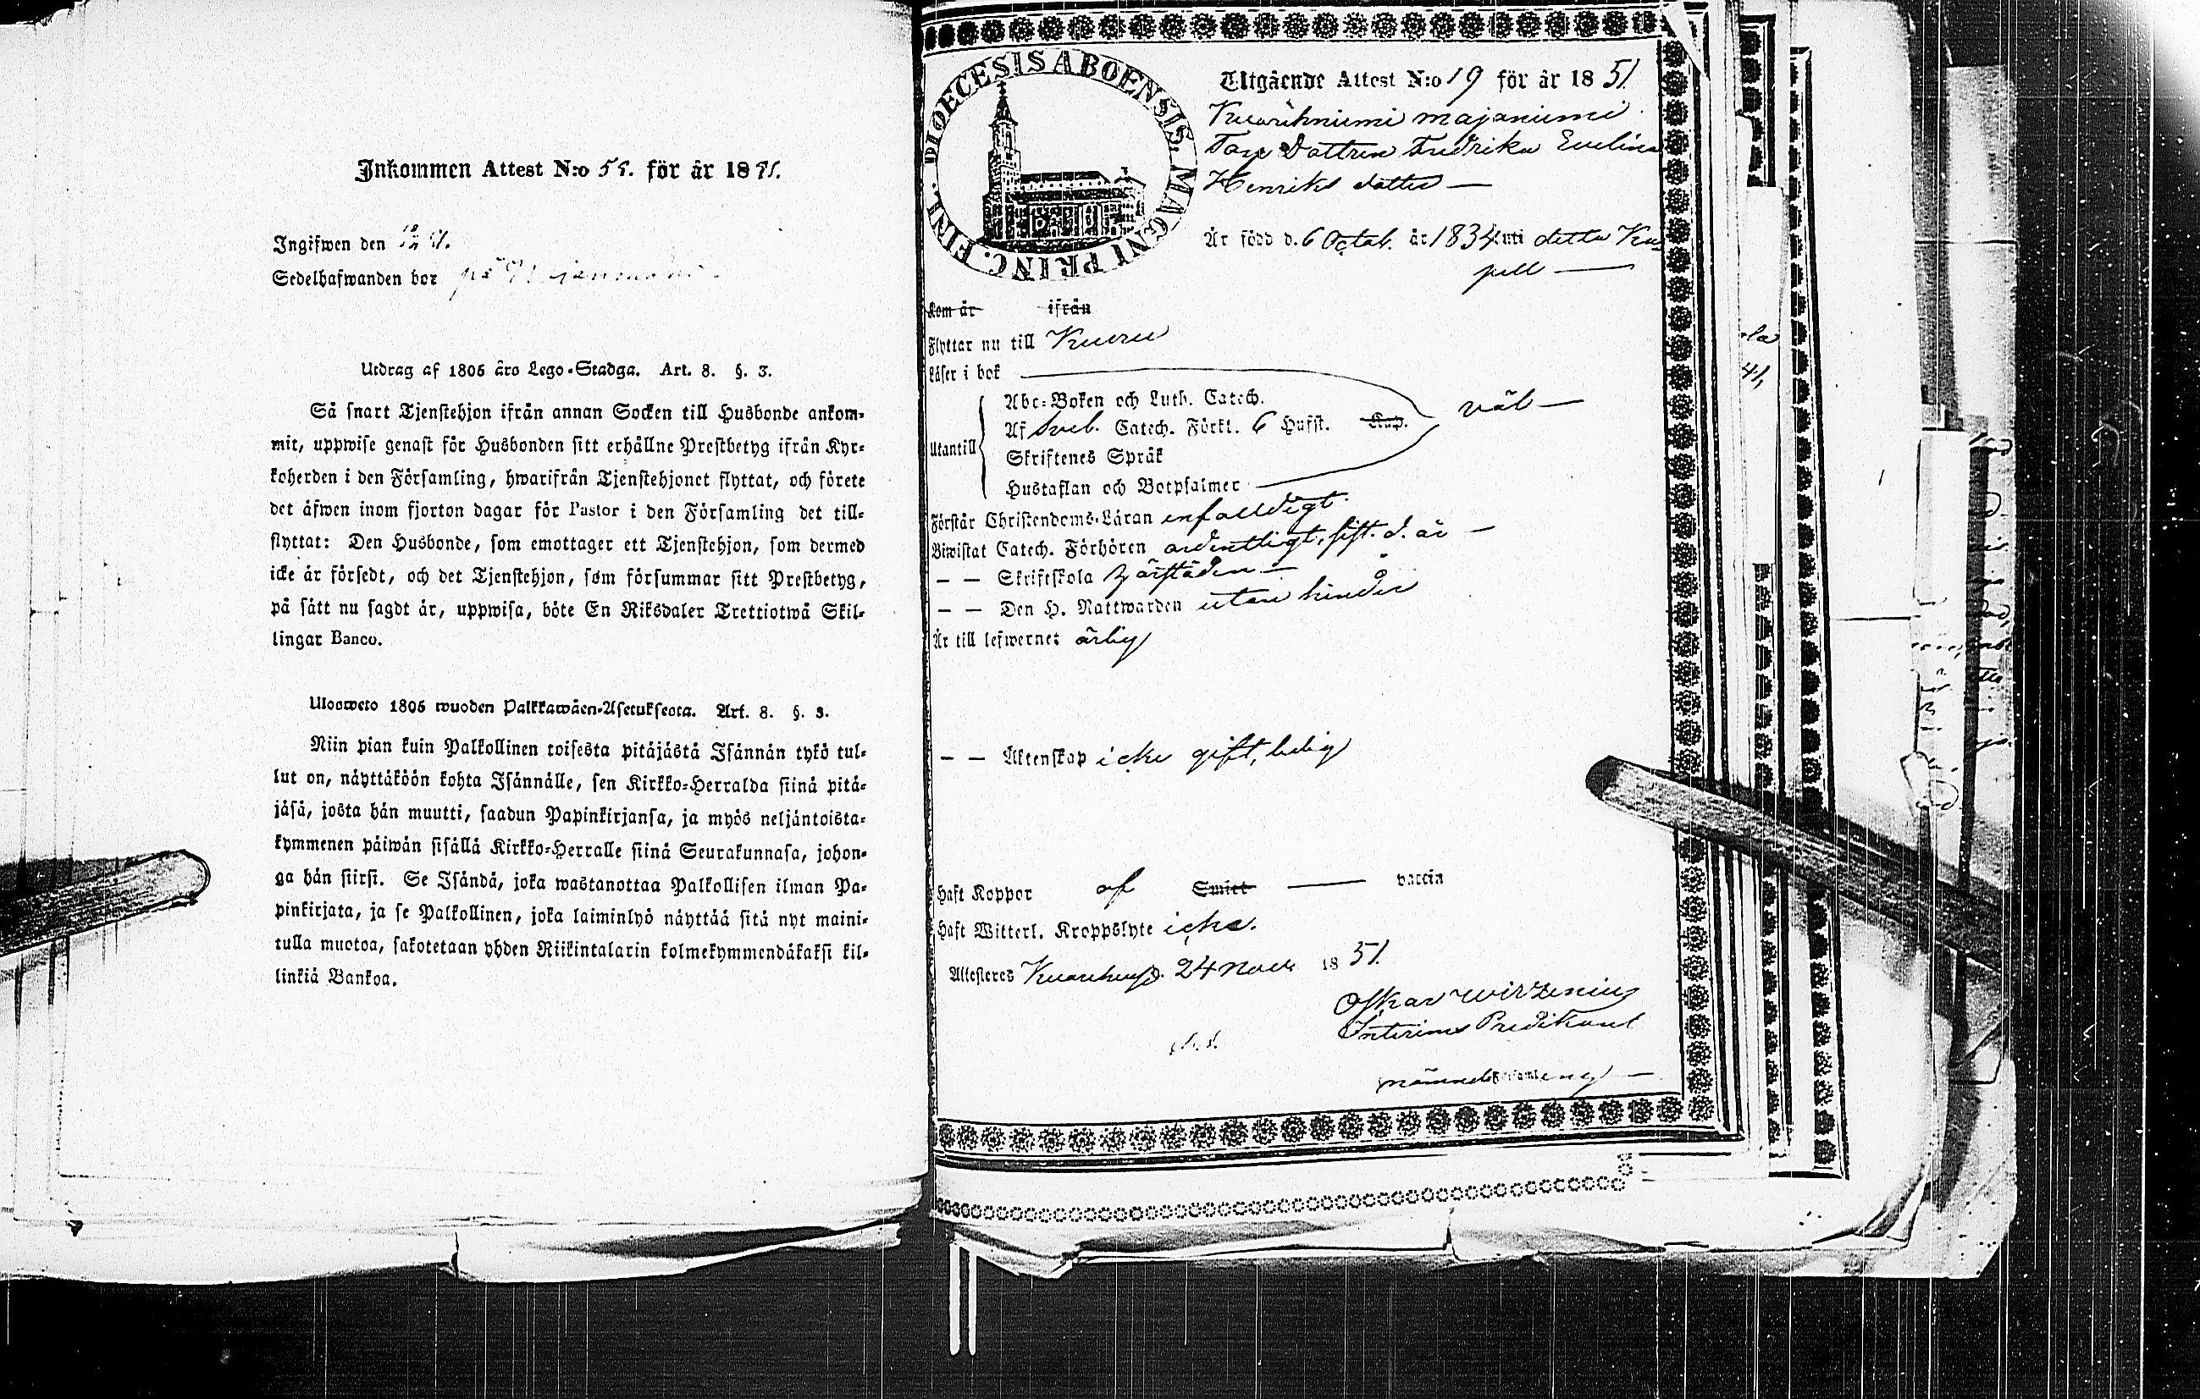 Inkommen Attest N:o 55. för år 1851.
Ingifwen den
Sedelhafwanden bor på
Utdrag af 1805 års Lego-Stadga. Art. 8. §. 3.
Så snart Tjenstehjon ifrån annan Socken till Husbonde ankom-
mit, uppwise genast för Husbonden sitt erhållne Prestbetyg ifrån Kyr-
koherden i den Församling, hwarifrån Tjenstehjonet flyttat, och förete
det äfwen inom fjorton dagar för Pastor i den Församling det till-
flyttat: Den Husbonde, som emottager ett Tjenstehjon, som dermed
icke är försedt, och det Tjenstehjon, som försummar sitt Prestbetyg,
på sätt nu sagdt är, uppwisa, böte En Riksdaler Trettiotwå Skil-
lingar Banco.
Ulosweto 1805 wuoden Palkkawäen-Asetuksesta. Art. 8. §. 3.
Niin pian kuin Palkollinen toisesta pitäjästä Isännän tykö tul-
lut on, näyttäköön kohta Isännälle, sen Kirkko-Herralda siinä pitä-
jäsä, josta hän muutti, saadun Papinkirjansa, ja myös neljäntoista-
kymmenen päiwän sisällä Kirkko-Herralle siinä Seurakunnasa, johon-
ga hän siirsi. Se Isändä, joka wastanottaa Palkollisen ilman Pa-
pinkirjata, ja se Palkollinen, joka laiminlyö näyttää sitä nyt maini-
tulla muotoa, sakotetaan yhden Riikintalarin kolmekymmendäkaksi kil-
linkiä Bankoa.
DIOECESIS ABOENSIS. MAGNI PRINC. FINL.
Utgående Attest N:o 19 för år 1851.
majaniemi
Torp Dottren Fredrika Evelina
Henriks dotter —
Är född d. 6 Octob. år 1834 uti detta Ka
pell —
Kom år ifrån
Flyttar nu till Kuoru
Läser i bok
Utantill
Abc-Boken och Luth. Catech.
Af Sveb. Catech. Förkl. 6 Hufst. Kap. väl —
Skriftenes Språk
Hustaflan och Botpsalmer
Förstår Christendoms-Läran enfaldigt
Biwistat Catech. Förhören ordentligt, sist. d. år —
— — Skriftskola
— — Den H. Nattwarden utan hinder
Är till lefwernet ärlig
— — Äktenskap icke gift, ledig
Haft Koppor af Smitt — vaccin
Haft Witterl. Kroppslyte icke.
Attesteres 24 Nov. 1851.
Oskar Wirzenius
Interims Predikant